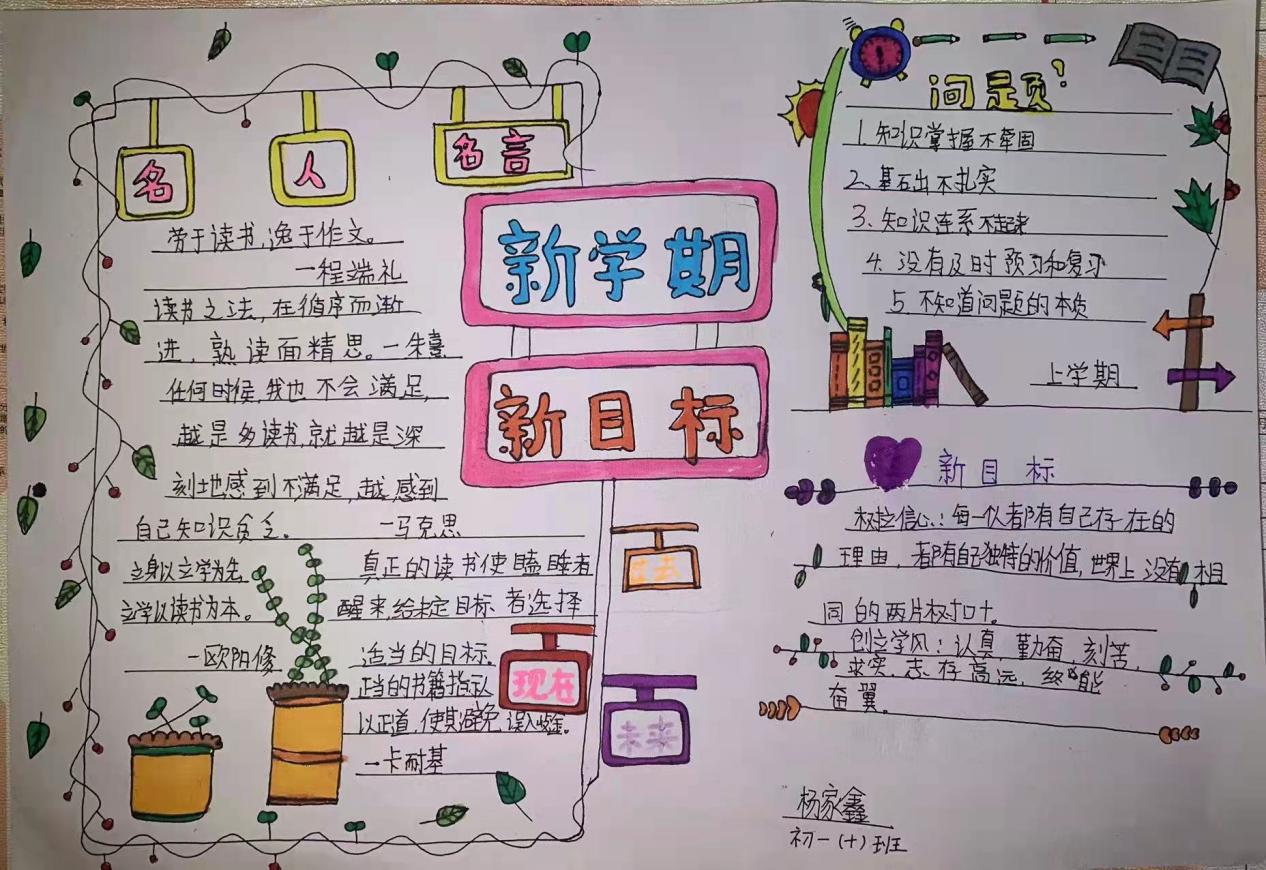 名人名言
劳于读书,逸于作文。
—程端礼
读书之法,在循序而渐
进,熟读而精思。—朱熹
任何时候,我也不会满足,
越是多读书,就越是深
刻地感到不满足,越感到
自己知识贫乏。 —马克思
立身以立学为先
立学以读书为本。
—欧阳修
真正的读书使瞌睡者
醒来,给未定目标者选择
适当的目标。
正当的书籍指示人
以正道,使其避免误入歧途。
—卡耐基
新学期
新目标
过去
现在
未来
问题?
1.知识掌握不牢固
2、基础不扎实
3、知识连系不起来
4.没有及时预习和复习
5.不知道问题的本质
上学期
新目标
树立信心:每一个人都有自己存在的
理由,都有自己独特的价值,世界上没有相
同的两片树叶。
创立学风:认真 勤奋,刻苦,
求实,志存高远,终能
奋翼。
杨家鑫
初一(十)班